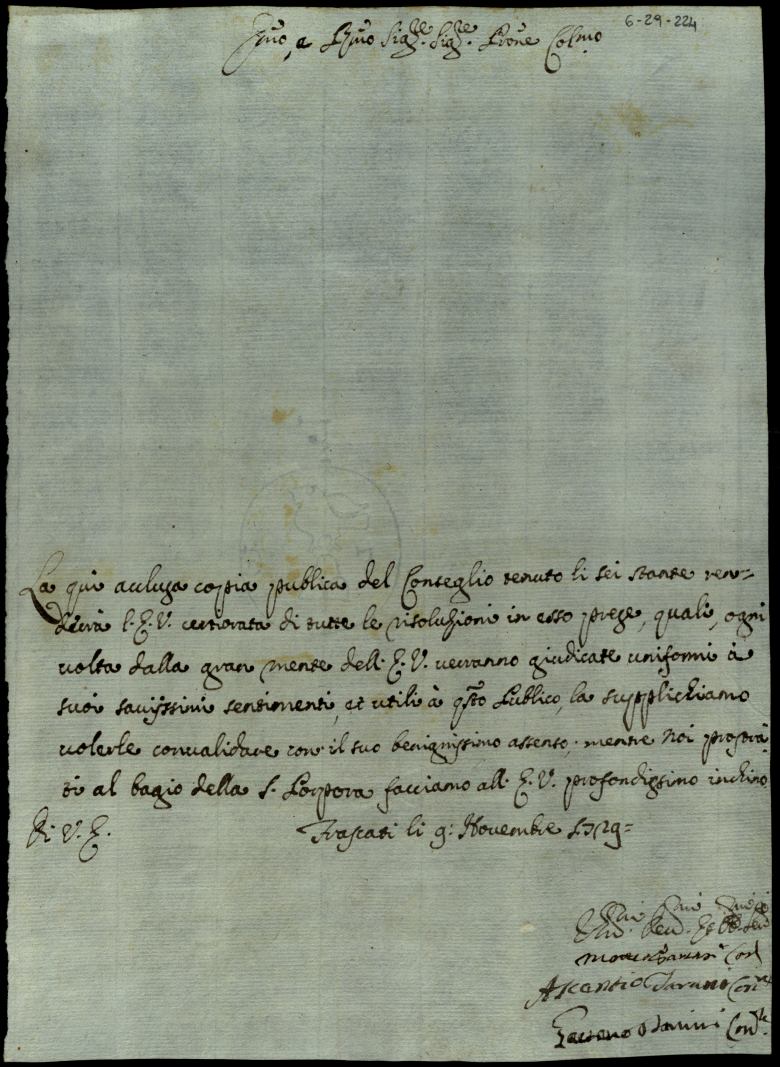 6-29-224
Emo, e Rmo Sigre. Sigre. Prone Colmo
La qui acclusa copia publica del Conseglio tenuto li sei stante ren=
derà l'E.V. certiorata di tutte le risoluzioni in esso prese, quali, ogni
volta dalla gran mente dell'E.V. verranno giudicate uniformi à
suoi savijssimi sentimenti, et utili à qsto Publico, la supplichiamo
volerle convalidare con il suo benignissimo assenso, mentre noi prostra
ti al bagio della S. Porpora facciamo all'E.V. profondissimo inchino
Di V.E. Frascati li 9: Novembre 1729=
Con
Ascentio Conre
Gaetano Conre